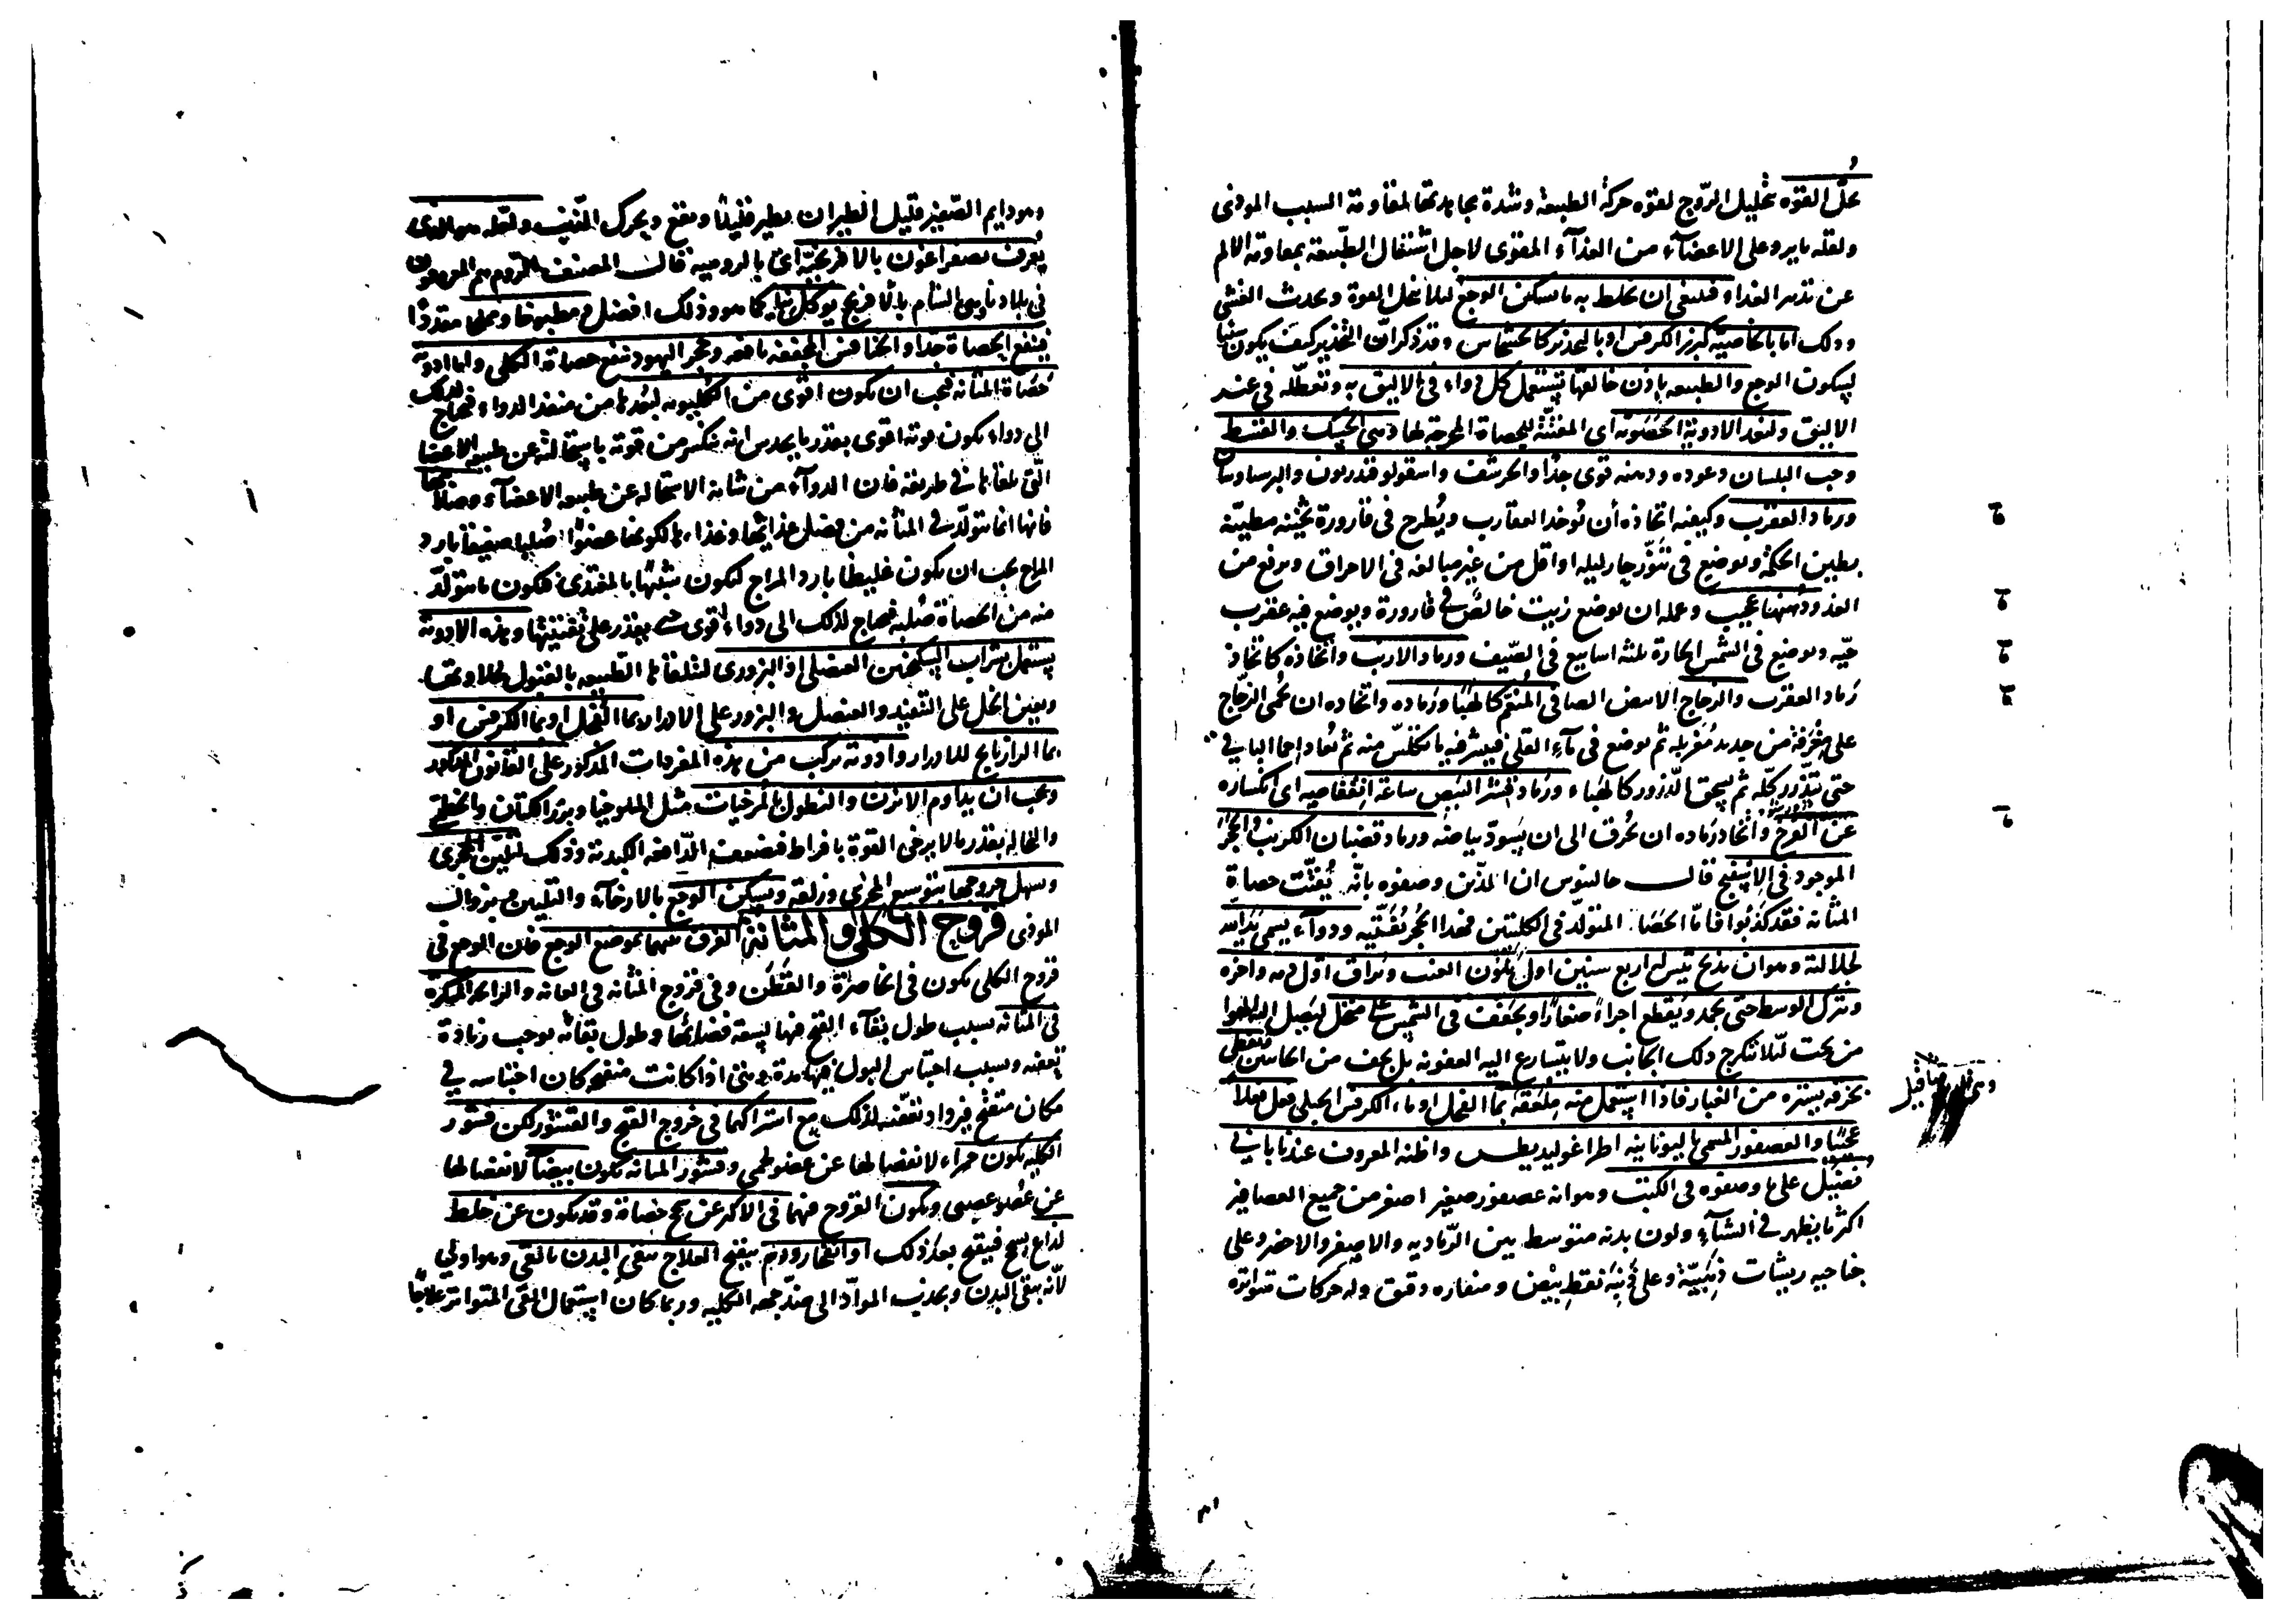 يحلّ القوّه بتحليل الرّوح لقوّه حركة الطبيعة وشدة مجاهدتها لمقاومة السبب الموذى
ولقله ما يرد على الاعضآء من الغذآء المقوى لاجل اشتغال الطّبيعة بمقاومة الالم
عن تدبير الغذاء فينبغى ان يخلط به ما يسكن الوجع ليلا تنحل القوة ويحدث الغشى
وذلك اما بالخاصيّة كبزر الكرفس او بالتخدير كالخشخاش وقد ذكر انّ التخدير كيف يكون سببا
لسكون الوجع والطبيعه باذن خالقها تستعمل كل دواء فى الاليق به وتعطّله فى غير
الاليق ولنعد الادوية الحصوية اى المفتّتة للحصاة المخرجة لها وهى الحسك والقسط
وحب البلسان وعوده ودهنه قوى جدّا والحرشف واسقولوقندريون والبرسياوشان
ورماد العقرب وكيفية اتخاذه أن تُوخذ العقارب ويُطرح فى قارورة ثخينه مطيّنة
بطين الحكمة ويوضع فى تنّور حار ليله او اقل من غير مبالغه فى الاحراق ويرفع من
الغد ودُهنها عجيب وعمله ان يوضع زيت خالص فى قارورة ويوضع فيه عقرب
حيّه ويوضع فى الشمس الحارة ثلثه اسابيع فى الصّيف ورماد الارنب واتخاذه كاتخاذ
رماد العقرب والزجاج الابيض الصافى المُنعّم كالهَبَا ورَماده واتخاذه ان يُحمى الزّجاج
على مِغْرفة من حديد مُغربله ثم يوضع فى مآء القلى فينثر فيه ما تكلّس منه ثم يُعاد احما الباقى
حتى يتذّرر كلّه ثم يسحق الذّرور كالهَباء ورَماد قشر البَيض ساعة انقفاصه اى انكساره
عن الفرخ واتخاذ رَماده ان يُحرق الى ان يَسودّ بياضه ورماد قضبان الكرنب والحجر
الموجود فى الاسفنج قالـ جالينوس ان الذين وصفوه بانّه يُفتّت حصاة
المثانه فقد كذبُوا فامّا الحصا المتولّد فى الكليتين فهذا الحجر يُفتّته ودوآء يسمى يَدَ الله
لجلالته وهو ان يذبح تيس له اربع سنين اول تلوّن العنب ويُراق اوّل دمه واخره
ويترك الوسط حتى يجمد ويُقطع اجزاءً صغارًا ويجفف فى الشمس على منخل ليصل اليه الهوا
من تحت لئلا يتكرج ذلك الجانب ولا يتسارع اليه العفونه بل يجف من الجانبين مغطى
بخرقه يستره من الغبار فاذا استعمل منه مِلعَقة بما الفجل او ماء الكرفس الجبلى فعل فعلا
عجيبًا والعصفور المسمى باليونانيه اطراغوليديطس واظنه المعروف عندنا بابى
فضيل على ما وصفوه فى الكتب وهو انه عصفور صغير اصغر من جميع العصافير
اكثر ما يظهر فى الشتآء ولون بدنه متوسط بين الرّماديه والاصفر والاخضر وعلى
جناحيه ريشات ذهبيّة وعلى ذَنبه نقط بيض ومنقاره دقيق وله حركات متواتره
وهو دايم الصّفير قليل الطيران يطير قليلًا ويقع ويحرك الذّنب ولعلّه هو الذى
يُعرف بصفراغون بالافرنجيّة اى بالروميه قالـ المصنف الروم هم المعروفون
فى بلادنا وهى الشام بالافرنج يوكل نيا كما هو وذلك افضل ومطبوخا ومملحا مقددًا
فينفع الحصاة جدا والخنافس المجففه نافعه وحجر اليهود ينفع حصاة الكلى واما ادوية
حَصاة المثانه فيجب ان يكون اقوى من الكلييه لبُعدها من منفذ الدواء فيحتاج لذلك
الى دواء يكون قوته اقوى بقدر ما يحدس انه ينكسر من قوته باستحالته عن طبيعه الاعضا
الّتى يلقاها فى طريقه فان الدوآء من شانه الاستحاله عن طبيعه الاعضآء وصلابتها
فانها انما يتولّد فى المثانه من فضل غذائها وغذاءها لكونها عضوًا صُلبا ضعيفا بارد
المزاج يجب ان يكون غليظا بارد المزاج ليكون شبيهًا بالمغتذى فيكون ما يتولّد
منه من الحصاة صُلبه فيحتاج لذلك الى دواء اقوى حتى يقدر على تفتيتها وهذه الادوية
يستعمل بشراب السكنجبين العنصلى او البزورى لتلقاها الطبيعه بالقبول لحلاوتها
ويعين الخل على التنفيذ والعنصل والبزور على الادرار او بما الفجل او بما الكرفس او
بما الرازيانج للادرار وادويه يركب من هذه المفردات المذكور على القانون المذكور
ويجب ان يداوم الابزن والنطول بالمُرخيات مثل الملوخيا وبزر الكتان والخطمى
والنخاله بقدر ما لا يرخى القوة بافراط فيضعف الدّافعه الكليه وذلك لتليين المجرى
ويسهل خروجها بتوسيع المجرى وزلقه ويسكن الوجع بالارخآء والتليين مع زوال
الموذى قروح الكلى والمثانة الفرق بينهما بموضع الوجع فان الوجع فى
قروح الكلى يكون فى الخاصرة والقَطَن وفى قروح المثانه فى العانه والرائحة المنكرة
فى المثانه بسبب طول بقآء القيح فيها لسعة فضائها وطول بقائه يوجب زيادة
تعفنه وبسبب احتباس البول فيها مدة وهى اذا كانت متقيحه كان احتباسه فى
مكان متقيح فيزداد تعفّنه لذلك مع اشتراكهما فى خروج القيح والقشور لكن قشور
الكليه يكون حمراء لانفصالها عن عضو لحمى وقشور المثانه يكون بيضآ لانفصالها
عن عضو عصبى ويكون القروح فيهما فى الاكثر عن سحج حصاة وقد يكون عن خلط
لذاع يسحج فيتقيح بعد ذلك او انفجار ورم يتقيح العلاج ينقى البدن بالقى وهو اولى
لأنه ينقى البدن ويجذب الموادّ الى ضدّ جهه الكليه وربما كان استعمال القى المتواتر علاجًا